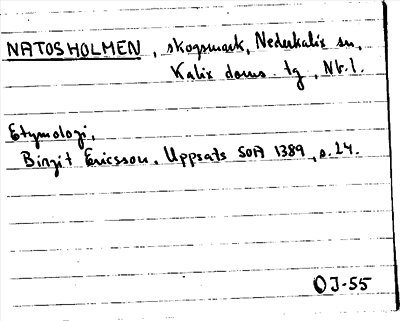 NATOSHOLMEN, skogsmark, Nederkalix sn,
Kalix doms. tg, Nb. l.
Etymologi,
Birgit Ericsson. Uppsats SOA 1389, s. 24.
OJ-55